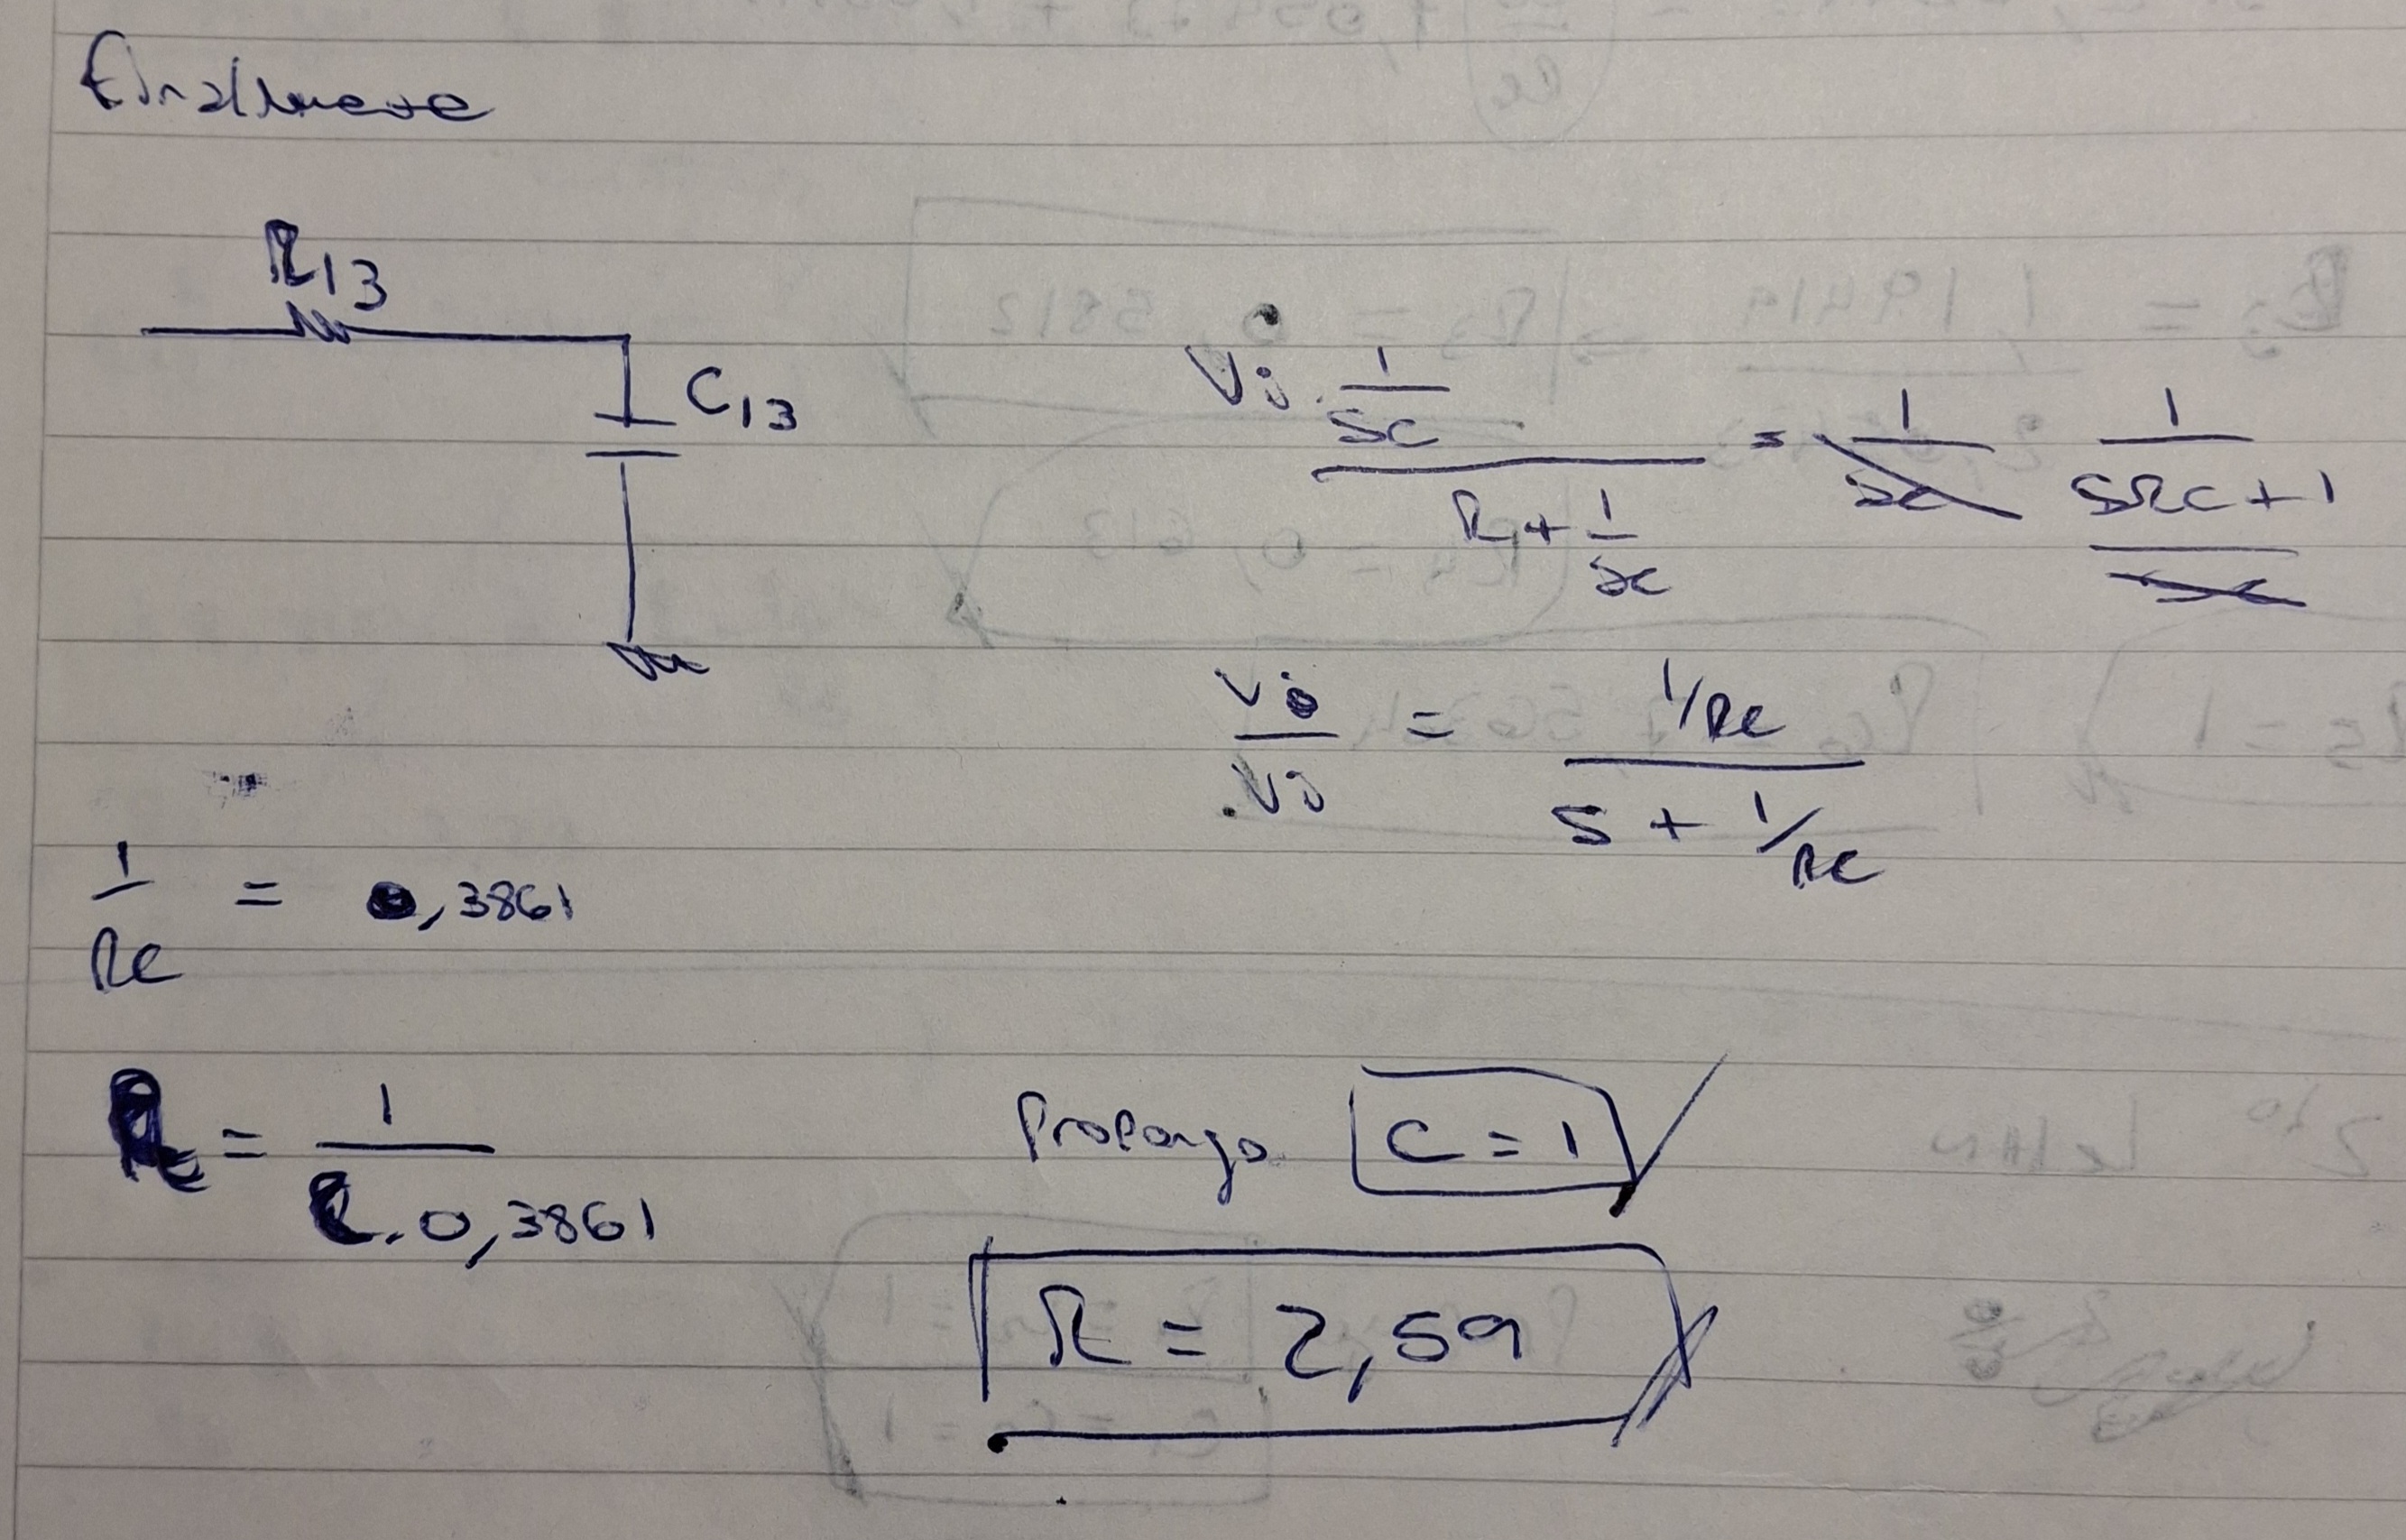 Finalmente
R13
C13
Vi · 1/SC / (R + 1/SC) = 1 / SRC + 1
Vo/Vi = 1/RC / (S + 1/RC)
1/RC = 0,3861
R = 1 / (C . 0,3861)
Propongo C = 1
R = 2,59